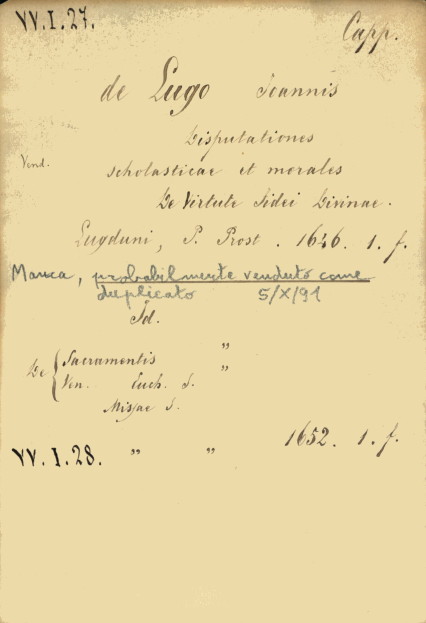 VV.I.27. Capp.
de Lugo Ioannis
Disputationes
Vend.
scholasticae et morales
De Virtute Fidei Divinae.
Lugduni, P. Prost. 1646. 1. f.
Manca, probabilmente venduto come
duplicato 5/X/91
Id.
"
De { Sacramentis "
Ven. Euch. S.
Missae S.
1652. 1. f.
VV.I.28. " "